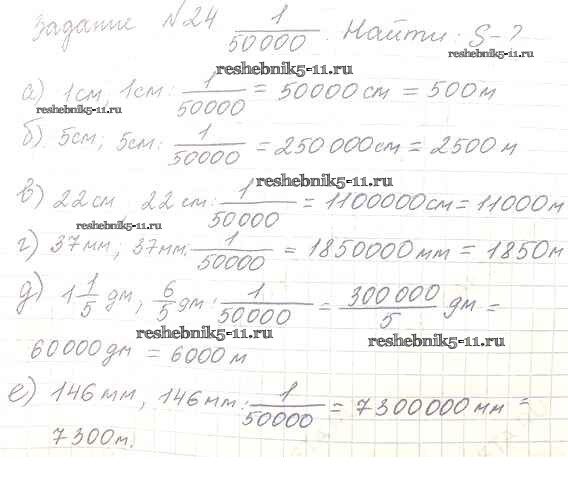 Задание №24 1/50000. Найти: S-?
reshebnik5-11.ru
а) 1см, 1см: 1/50000 = 50000см = 500м
reshebnik5-11.ru
б). 5см; 5см: 1/50000 = 250000см = 2500м
reshebnik5-11.ru
в) 22см 22см: 1/50000 = 1100000см = 11000м
reshebnik5-11.ru
г) 37мм; 37мм: 1/50000 = 1850000мм = 1850м
д) 1 1/5 дм, 6/5 дм: 1/50000 = 300000/5 дм =
reshebnik5-11.ru
reshebnik5-11.ru
60000дм = 6000м
е) 146мм, 146мм: 1/50000 = 7300000мм =
7300м.